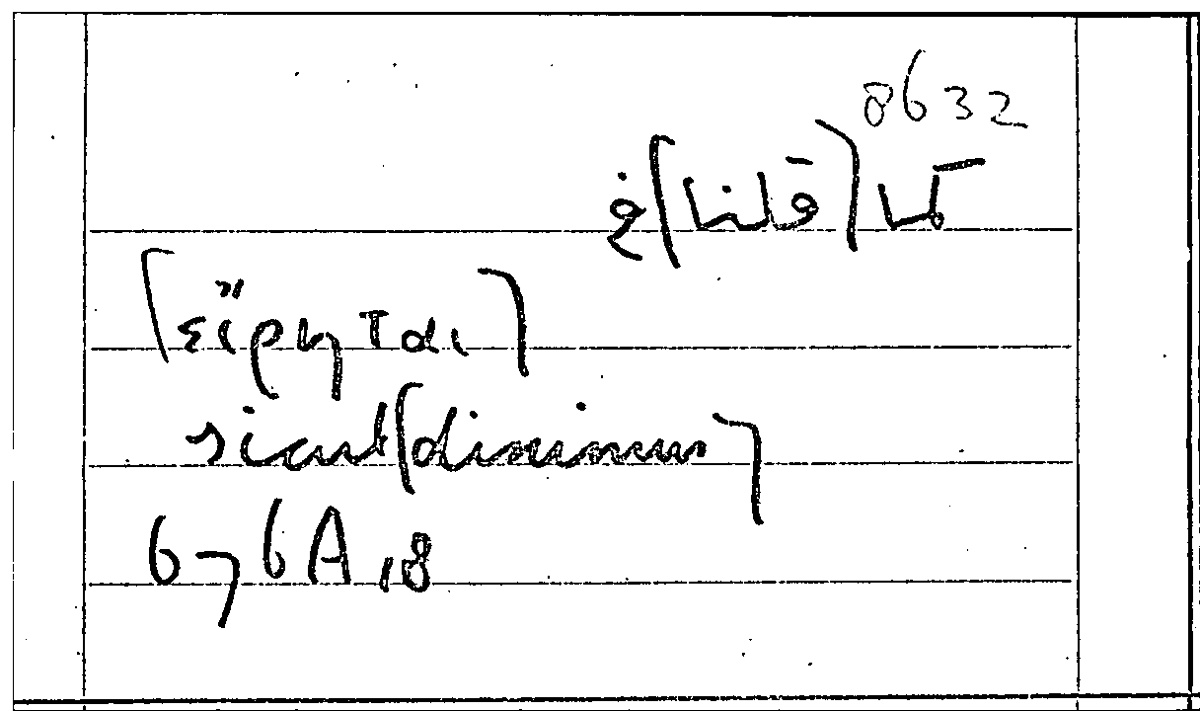 8632
كما (قلنا) في
[εἴρηται]
sicut (diximus)
676A,18